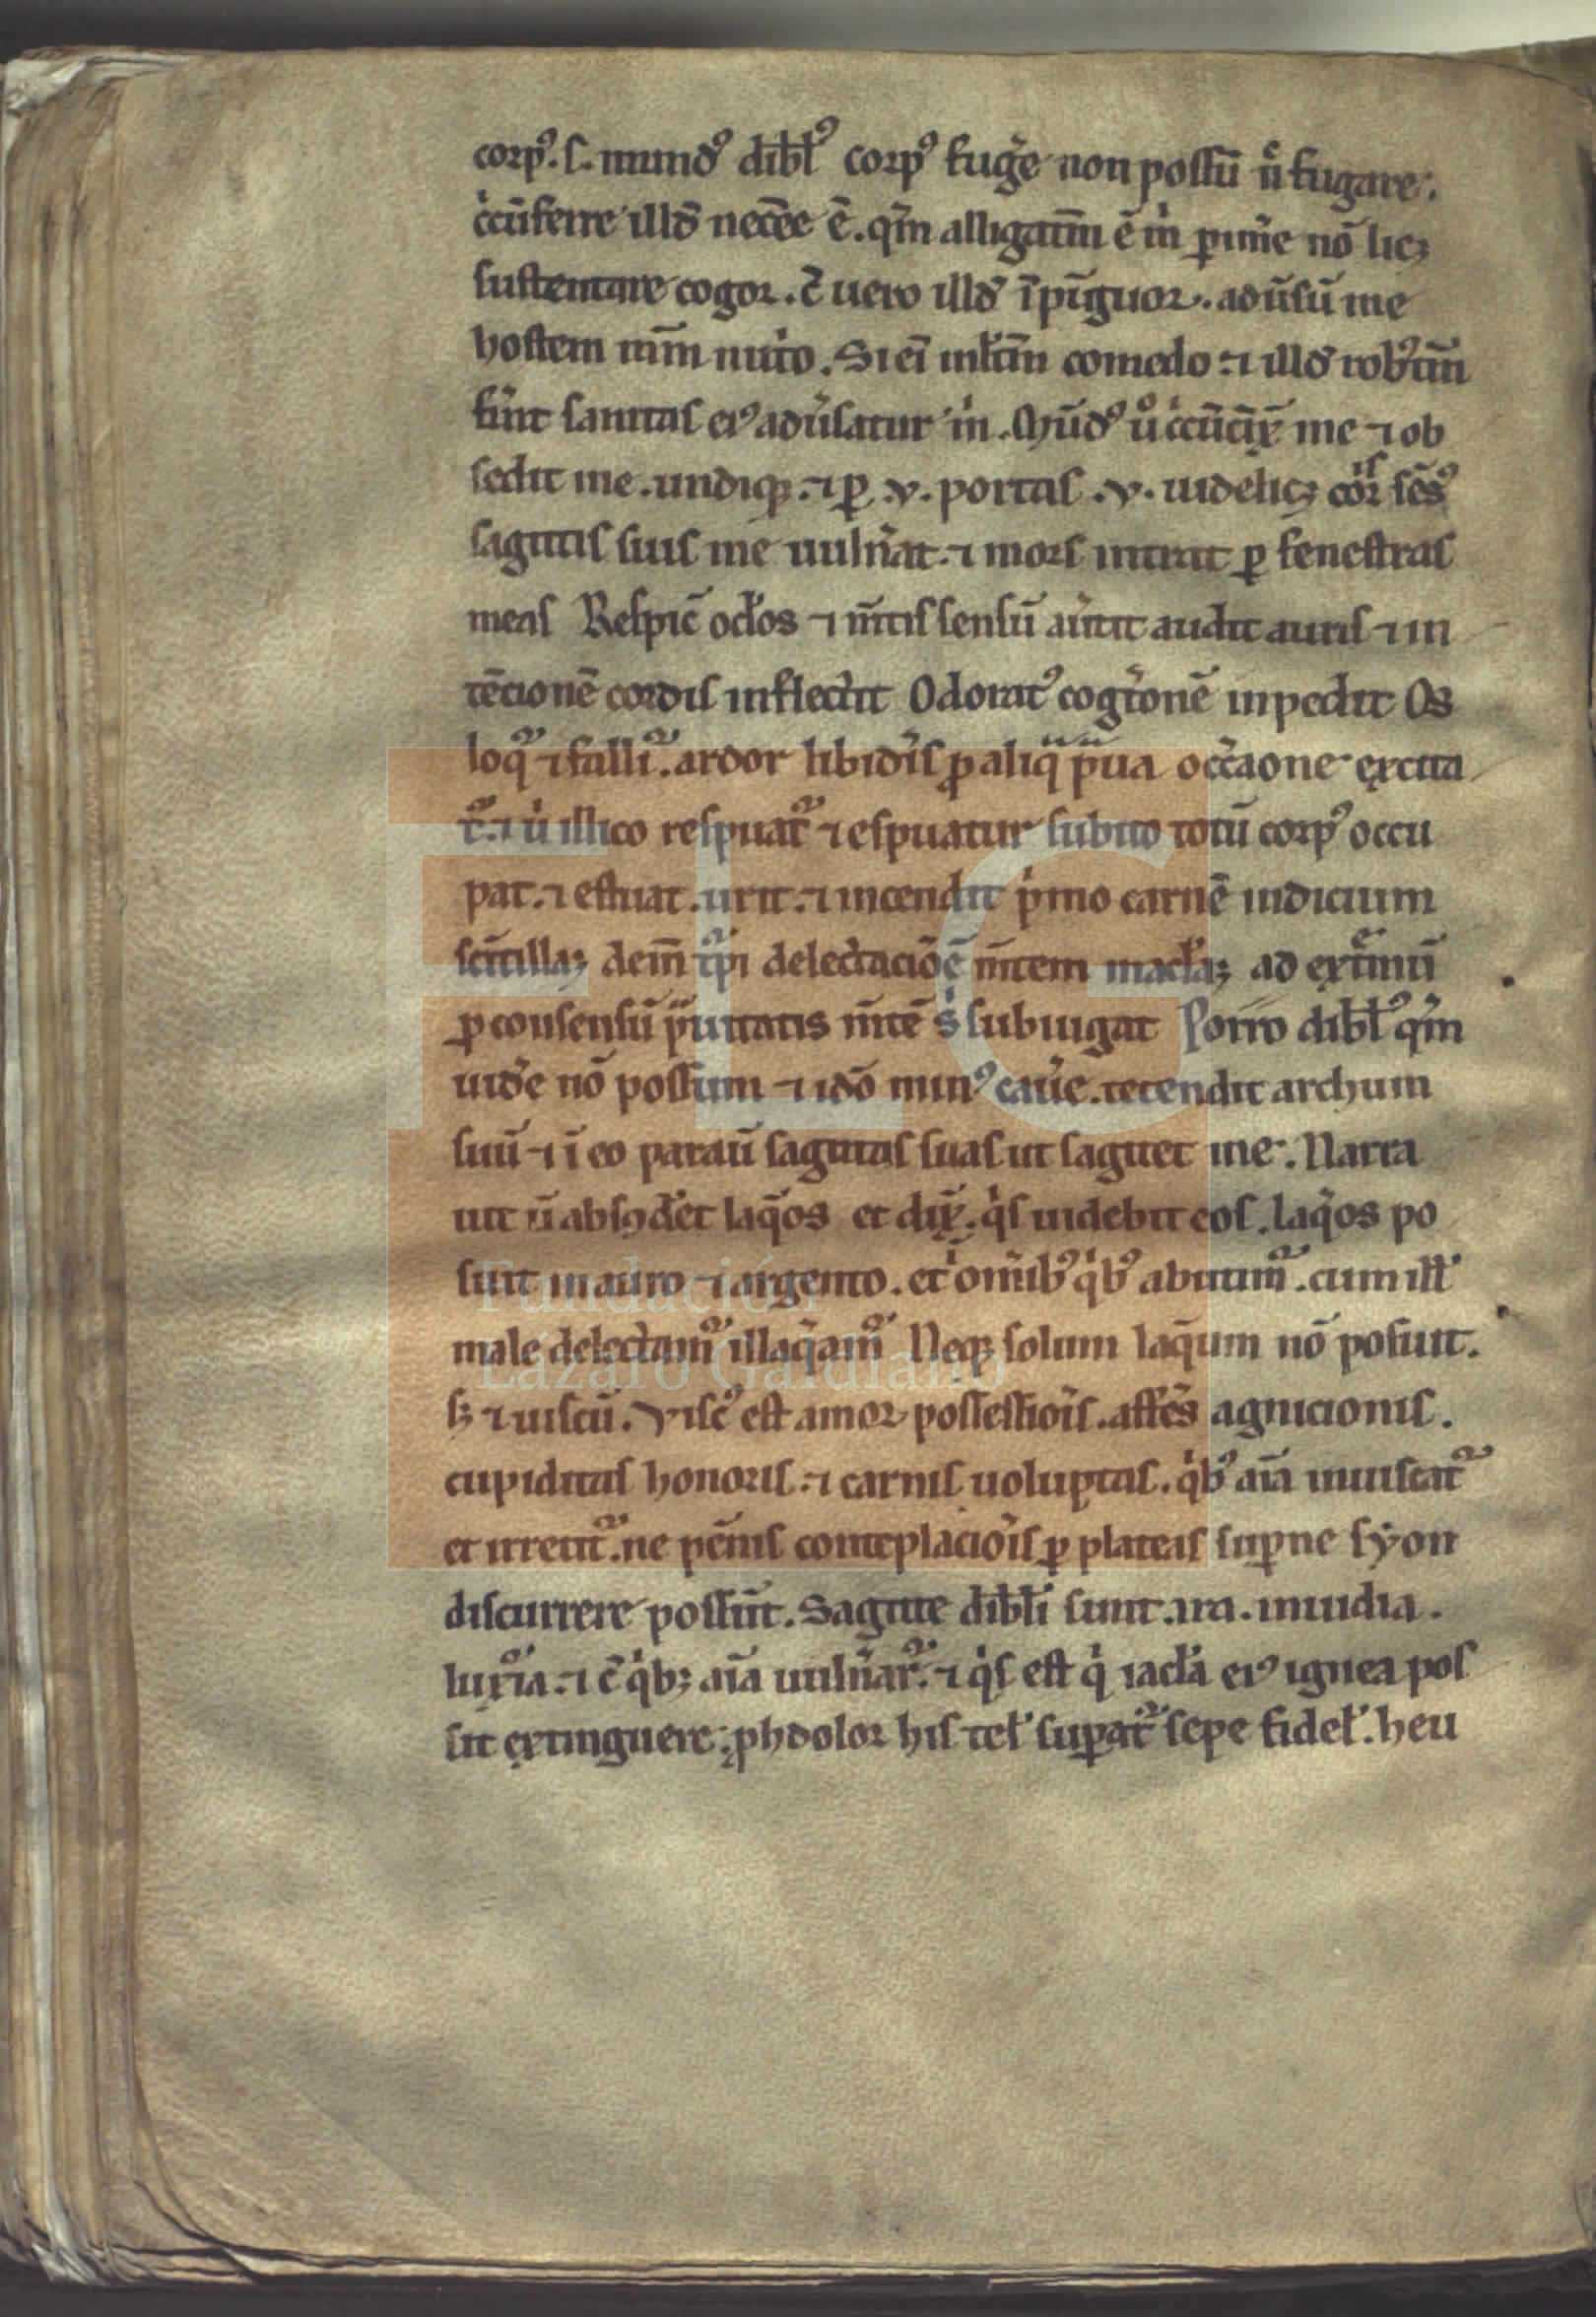 corpꝰ. ſ. mundꝰ dibłꝰ corpꝰ fuge non poſſū ñ fugare.
ccūferre illđ neceē ē. qm̄ alligatū ē m pime nō licꝫ
ſuſtentare cogor. c̄ uero illđ īpīguor. aduſū me
hoſtem mm̄ nutͥo. Si eī mltm̄ comedo ⁊ illđ robꝰtm̄
fūit ſanitas eiꝰ aduſatur m. Mūdꝰ uͦ ccūcīx̄ me ⁊ ob
ſedit me. undiqꝫ. ⁊ ꝑ .v. portas .v. uidelicꝫ cor̄is ſēsꝰ
ſagittis ſuis me uuln̄at. ⁊ mors intrat ꝑ feneſtras
meas Reſpic̄ oc̄los ⁊ m̄tis ſenſū auͥtit audit auris ⁊ in
tēcionē cordis inflectit Odoratꝰ cogitͦonē inpedit Os
loqͬ ⁊ fallitͬ. ardor libidīs ꝓ aliqͣ pͣua occaͦione excita
tͬ. ⁊ uͥ illico reſpuatͬ ⁊ eſpuatur ſubito totū corpꝰ occu
pat. ⁊ eſtuat. urit. ⁊ incendit pͥmo carnē indicium
ſcītillaꝫ dein̄ tͬpi delectaciōē m̄tem maclaꝫ ad extͤmū
ꝑ conſenſū pͣuitatis m̄tē sͥ ſubiugat Porro dibłꝰ qm̄
uide nō poſſum ⁊ idō minꝰ caūe. tetendit archum
ſuū ⁊ ī eo parauͥ ſagittas ſuas ut ſagitet me. Narra
uit ū abſ9đet laqͤos et dix̄. qͥs uidebit eos. laqͤos po
ſuit in auro ⁊ argento. et om̄ibꝰ qͥbꝰ abutimͬ. cum iłł
male delectamͬ illaqͤamͬ Neqꝫ ſolum laqͤum nō poſuit.
ſꝫ ⁊ uiſcū. Viſcꝰ eſt amor poſſeſſioīs. affcs̄ agnicionis.
cupiditas honoris. ⁊ carnis uoluptas. qͥbꝰ aīa inuiſcatͬ
et irretitͬ. ne pēnis conteplacioīs ꝑ plateas ſuꝑne ſyon
diſcurrere poſſīt. Sagitte dibłi ſunt. ira. inuidia.
luxͬia. ⁊ c̄ qͥbꝫ aīa uuln̄atͬ. ⁊ qͥs eſt qͥ iacl̄a eiꝰ ignea poſ
ſit extinguere. ꝓh dolor his teł ſuꝑatͬ ſepe fideł. heu
Fundación
Lázaro Galdiano